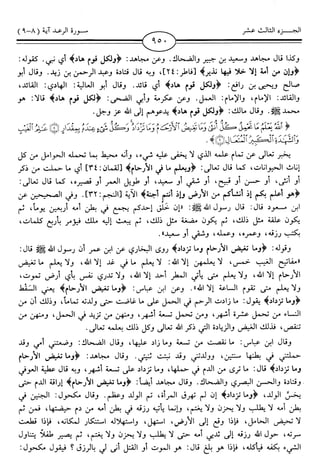 الجـــزء الثالث عشر
٩٥٠
سـورة الرعـد آية (٨-٩)
وكذا قال مجاهد وسعيد بن جبير والضحاك. وعن مجاهد: ﴿ولكل قوم هاد﴾ أي نبي. كقوله:
﴿وإن من أمة إلا خلا فيها نذير﴾ [فاطر: ٢٤]، وبه قال قتادة وعبد الرحمن بن زيد. وقال أبو
صالح ويحيى بن رافع: ﴿ولكل قوم هاد﴾ أي قائد. وقال أبو العالية: الهادي: القائد،
والقائد: الإمام، والإمام: العمل. وعن عكرمة وأبي الضحى: ﴿ولكل قوم هاد﴾ قالا: هو
محمد ﷺ. وقال مالك: ﴿ولكل قوم هاد﴾ يدعوهم إلى الله عز وجل.
﴿اللَّهُ يَعْلَمُ مَا تَحْمِلُ كُلُّ أُنثَىٰ وَمَا تَغِيضُ الْأَرْحَامُ وَمَا تَزْدَادُ وَكُلُّ شَيْءٍ عِندَهُ بِمِقْدَارٍ ۝ عَالِمُ الْغَيْبِ
وَالشَّهَادَةِ الْكَبِيرُ الْمُتَعَالِ ۝﴾
يخبر تعالى عن تمام علمه الذي لا يخفى عليه شيء، وأنه محيط بما تحمله الحوامل من كل
إناث الحيوانات، كما قال تعالى: ﴿ويعلم ما في الأرحام﴾ [لقمان: ٣٤] أي ما حملت من ذكر
أو أنثى، أو حسن أو قبيح، أو شقي أو سعيد، أو طويل العمر أو قصيره، كما قال تعالى:
﴿هو أعلم بكم إذ أنشأكم من الأرض وإذ أنتم أجنة﴾ الآية [النجم: ٣٢]. وفي الصحيحين عن
ابن مسعود قال: قال رسول الله ﷺ: «إن خلق أحدكم يجمع في بطن أمه أربعين يوماً، ثم
يكون علقة مثل ذلك، ثم يكون مضغة مثل ذلك، ثم يبعث إليه ملك فيؤمر بأربع كلمات،
بكتب رزقه، وعمره، وعمله، وشقي أو سعيد».
وقوله: ﴿وما تغيض الأرحام وما تزداد﴾ روى البخاري عن ابن عمر أن رسول الله ﷺ قال:
«مفاتيح الغيب خمس، لا يعلمهن إلا الله: لا يعلم ما في غد إلا الله، ولا يعلم ما تغيض
الأرحام إلا الله، ولا يعلم متى يأتي المطر أحد إلا الله، ولا تدري نفس بأي أرض تموت،
ولا يعلم متى تقوم الساعة إلا الله». وعن ابن عباس: ﴿وما تغيض الأرحام﴾ يعني السّقط
﴿وما تزداد﴾ يقول: ما زادت الرحم في الحمل على ما غاضت حتى ولدته تماماً، وذلك أن من
النساء من تحمل عشرة أشهر، ومن تحمل تسعة أشهر، ومنهن من تزيد في الحمل، ومنهن من
تنقص، فذلك الغيض والزيادة التي ذكر الله تعالى وكل ذلك بعلمه تعالى.
وعن ابن عباس: ما نقصت من تسعة وما زاد عليها، وقال الضحاك: وضعتني أمي وقد
حملتني في بطنها سنتين، وولدتني وقد نبتت ثنيتي. وقال مجاهد: ﴿وما تغيض الأرحام
وما تزداد﴾ قال: ما ترى من الدم في حملها، وما تزداد على تسعة أشهر، وبه قال عطية العوفي
وقتادة والحسن البصري والضحاك. وقال مجاهد أيضاً: ﴿وما تغيض الأرحام﴾ إراقة الدم حتى
يخس الولد، ﴿وما تزداد﴾ إن لم تهرق المرأة، تم الولد وعظم. وقال مكحول: الجنين في
بطن أمه لا يطلب ولا يحزن ولا يغتم، وإنما يأتيه رزقه في بطن أمه من دم حيضتها، فمن ثم
لا تحيض الحامل، فإذا وقع إلى الأرض، استهل، واستهلاله استنكار لمكانه، فإذا قطعت
سرته، حول الله رزقه إلى ثديي أمه حتى لا يطلب ولا يحزن ولا يغتم، ثم يصير طفلاً يتناول
الشيء بكفه فيأكله، فإذا هو بلغ قال: هو الموت أو القتل أنى لي بالرزق؟ فيقول مكحول: